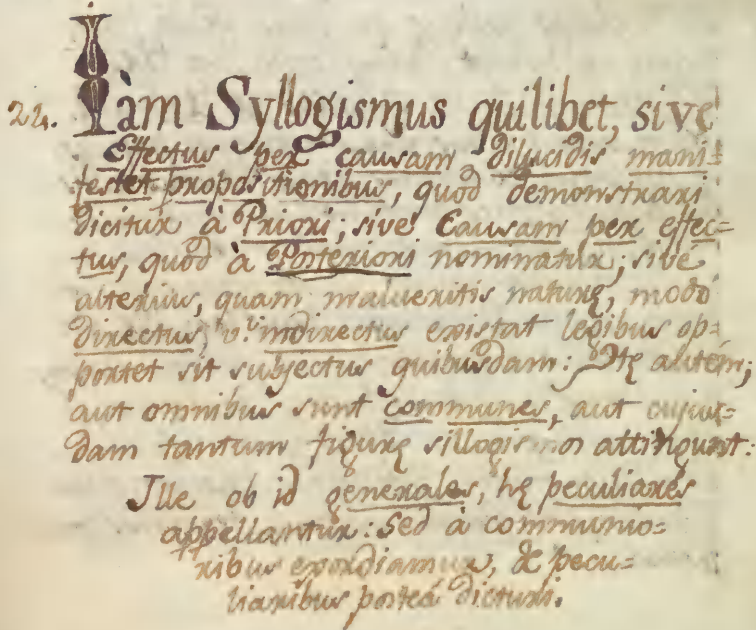 22. Iàm Syllogismus quilibet, sive
Effectus per causam dilucidis mani=
festet propositionibus, quod demonstrari
dicitur à Priori; sive Causam per effec=
tus, quod à Posteriori nominatur; sive
alterius, quam malueritis naturę, modò
directus, v.l indirectus existat legibus op=
portet sit subjectus quibusdam: Hę autem;
aut omnibus sunt communes, aut cujus=
dam tantum figurę sillogismos attingunt:
Jlle ob id generales, hę peculiares
appellantur: sed à communio=
ribus exordiamur, & pecu=
liaribus posteà dicturi.